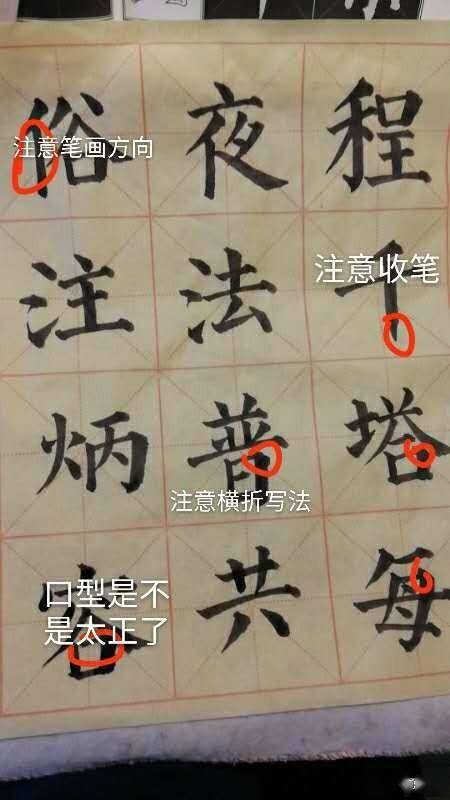 俗 夜 程
注意笔画方向
注 法 千
注意收笔
炳 普 塔
注意横折写法
共 每
口型是不
是太正了